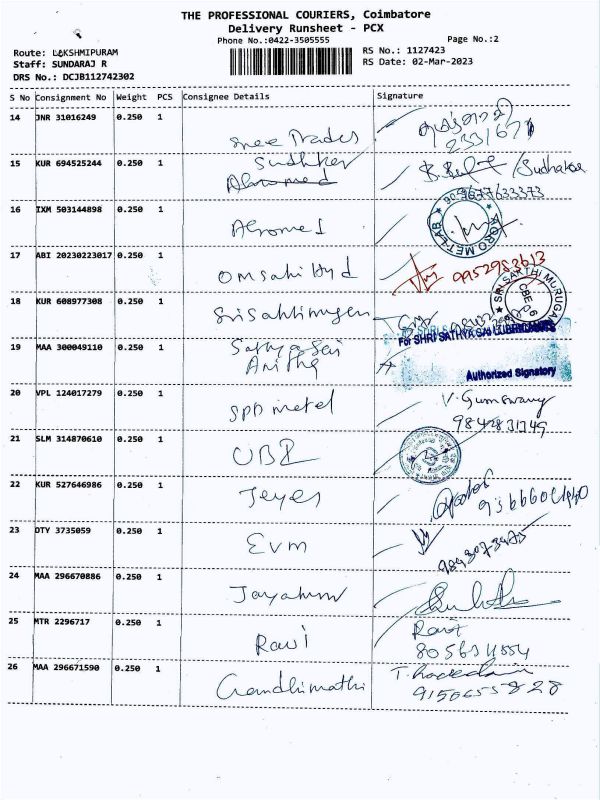 THE PROFESSIONAL COURIERS, Coimbatore
Delivery Runsheet - PCX
Phone No.:0422-3505555
Page No.:2
Route: LAKSHMIPURAM
RS No.: 1127423
Staff: SUNDARAJ R
RS Date: 02-Mar-2023
DRS No.: DCJB112742302
S No Consignment No Weight PCS Consignee Details Signature
14 JNR 31016249 0.250 1 Sree Trades
15 KUR 694525244 0.250 1 Sudhker /Sudhakar
9677633373
16 IXM 503144898 0.250 1
17 ABI 20230223017 0.250 1 Omsakthyd 9952983613
18 KUR 608977308 0.250 1 SRI SAKTHI MURUGA
CBE 06
19 MAA 300049110 0.250 1 Sathya Sai
For SHRI SATHYA SAI LUBRICANTS
Anitha
Authorized Signatory
20 VPL 124017279 0.250 1 SPD metal
9842831749
21 SLM 314870610 0.250 1 UBI
22 KUR 527646986 0.250 1 Jeyes
23 DTY 3735059 0.250 1 Evm
24 MAA 296670886 0.250 1
25 MTR 2296717 0.250 1 Ravi Ravi
26 MAA 296671590 0.250 1 Gandhimathi